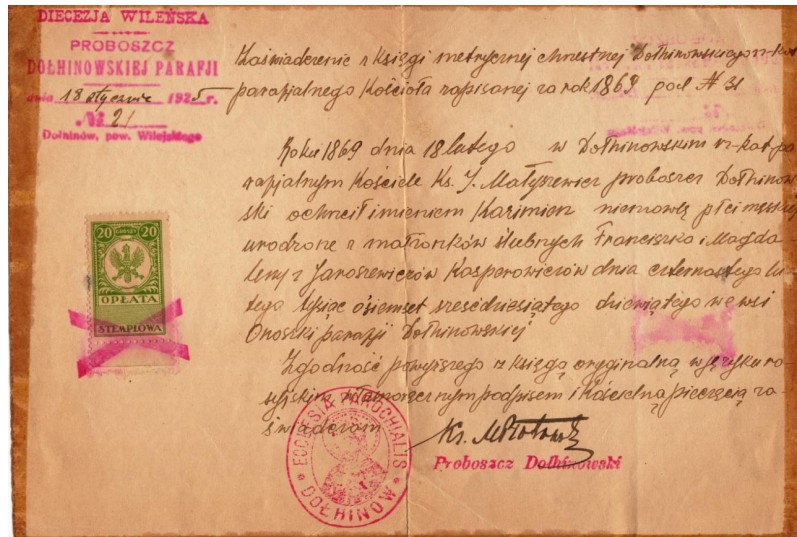 DIECEZJA WILEŃSKA
PROBOSZCZ
DOŁHINOWSKIEJ PARAFJI
dnia 18 stycznia 1925 r.
№ 21
Dołhinów, pow. Wilejskiego
Zaświadczenie z Księgi metrycznej chrestnej Dołhinowskiego rz-kat
parafjalnego Kościoła zapisanej za rok 1869 pod № 31
Roku 1869 dnia 18 lutego w Dołhinowskim rz-kat pa
rafjalnym Kościele Ks. J. Małyszewicz proboszcz Dołhinow
ski ochrzcił imieniem Kazimierz niemowlę płci męskiej
urodzone z małżonków ślubnych Franciszka i Magda
leny z Jaroszewiczów Kasperowiczów dnia czternastego lu
tego tysiąc ośiemset sześćdziesiątego dziewiątego we wsi
Onoszki parafji Dołhinowskiej
Zgodność powyższego z Księgą oryginalną w języku ro-
syjskim, własnoręcznym podpisem i Kościelną pieczęcią za-
świadczam
20 GROSZY 20
OPŁATA
STEMPLOWA
ECCLESIA PAROCHIALIS
DOŁHINÓW
Ks.
Proboszcz Dołhinowski